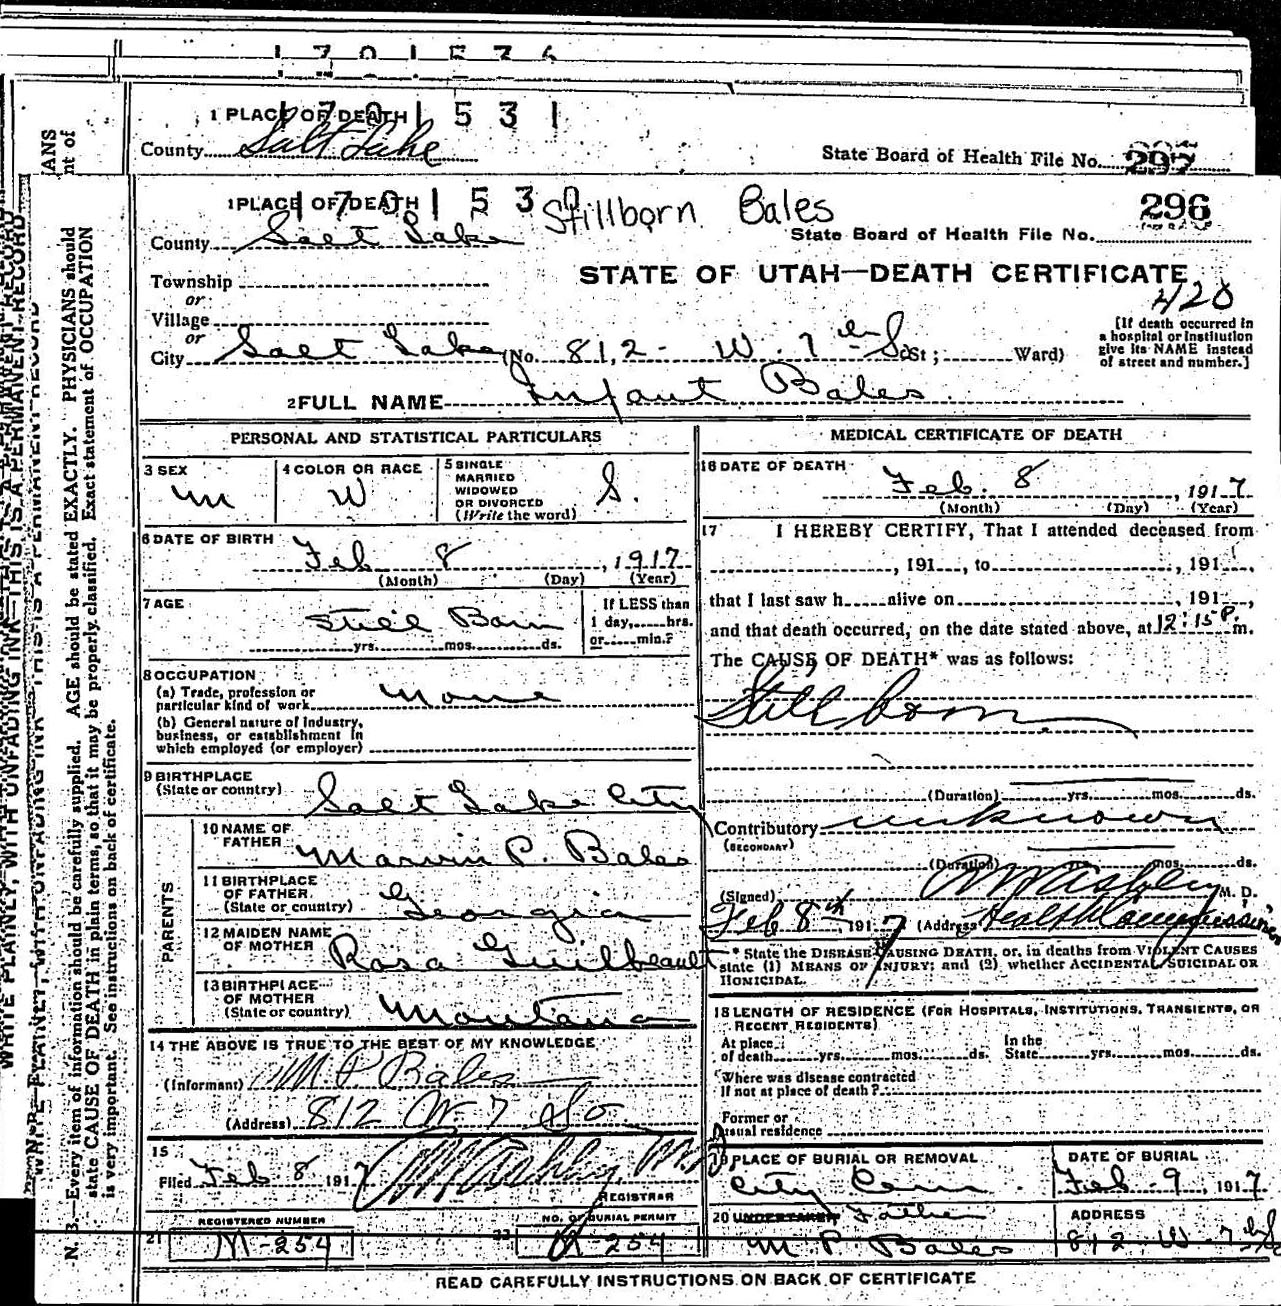 1 7 0 1 5 3 6
1 PLACE OF DEATH 1 7 0 1 5 3 1
County Salt Lake
State Board of Health File No. 297
1 PLACE OF DEATH 1 7 0 1 5 3 0 Stillborn Bales
296
County Salt Lake
State Board of Health File No.
STATE OF UTAH—DEATH CERTIFICATE
Township
420
or
Village
or
City Salt Lake (No. 812 W. 7th So St; Ward)
[If death occurred in
a hospital or institution
give its NAME instead
of street and number.]
2 FULL NAME Infant Bales
PERSONAL AND STATISTICAL PARTICULARS
3 SEX
M
4 COLOR OR RACE
W
5 SINGLE
MARRIED
WIDOWED
OR DIVORCED
(Write the word)
S.
6 DATE OF BIRTH
Feb 8, 1917
(Month) (Day) (Year)
7 AGE
Still Born
yrs. mos. ds.
If LESS than
1 day, hrs.
or min.?
8 OCCUPATION
(a) Trade, profession or
particular kind of work None
(b) General nature of industry,
business, or establishment in
which employed (or employer)
9 BIRTHPLACE
(State or country) Salt Lake City
PARENTS
10 NAME OF
FATHER Marvin P. Bales
11 BIRTHPLACE
OF FATHER
(State or country) Georgia
12 MAIDEN NAME
OF MOTHER Rosa Guilbeault
13 BIRTHPLACE
OF MOTHER
(State or country) Montana
14 THE ABOVE IS TRUE TO THE BEST OF MY KNOWLEDGE
(Informant) M. P. Bales
(Address) 812 W 7 So
15
Filed Feb 8 1917 Ashley, M.D.
REGISTRAR
REGISTERED NUMBER
21 M-254
NO. OF BURIAL PERMIT
22 254
MEDICAL CERTIFICATE OF DEATH
16 DATE OF DEATH
Feb. 8, 1917
(Month) (Day) (Year)
17 I HEREBY CERTIFY, That I attended deceased from
, 191 , to , 191 ,
that I last saw h alive on , 191 ,
and that death occurred, on the date stated above, at 12:15 P. m.
The CAUSE OF DEATH* was as follows:
Still born
(Duration) yrs. mos. ds.
Contributory unknown
(SECONDARY)
(Duration) yrs. mos. ds.
(Signed) Ashley M. D.
Feb 8th 1917 (Address) Health Commissioner
* State the DISEASE CAUSING DEATH, or, in deaths from VIOLENT CAUSES
state (1) MEANS OF INJURY; and (2) whether ACCIDENTAL, SUICIDAL OR
HOMICIDAL.
18 LENGTH OF RESIDENCE (FOR HOSPITALS, INSTITUTIONS, TRANSIENTS, OR
RECENT RESIDENTS)
At place
of death yrs. mos. ds. In the
State yrs. mos. ds.
Where was disease contracted
if not at place of death?
Former or
usual residence
19 PLACE OF BURIAL OR REMOVAL
City Cem.
DATE OF BURIAL
Feb-9, 1917
20 UNDERTAKER Father
M. P. Bales
ADDRESS
812 W-7th So
READ CAREFULLY INSTRUCTIONS ON BACK OF CERTIFICATE
WRITE PLAINLY, WITH UNFADING INK—THIS IS A PERMANENT RECORD
N. B.—Every item of information should be carefully supplied. AGE should be stated EXACTLY. PHYSICIANS should
state CAUSE OF DEATH in plain terms, so that it may be properly classified. Exact statement of OCCUPATION
is very important. See instructions on back of certificate.